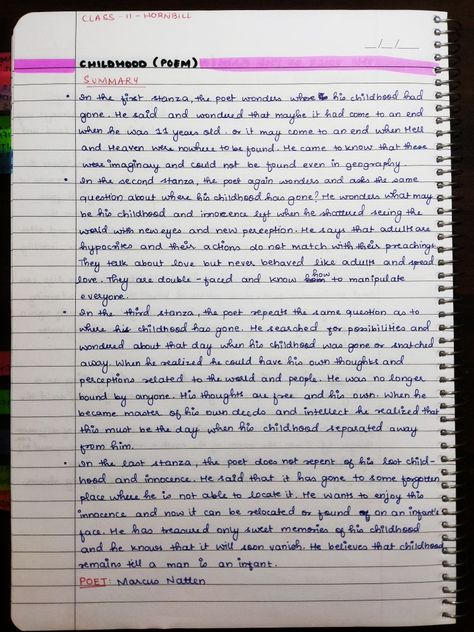 CLASS - 11 - HORNBILL
_/_/_
CHILDHOOD (POEM)
SUMMARY
• In the first stanza, the poet wonders where his childhood had
gone. He said and wondured that maybe it had come to an end
when he was 11 years old. or it may come to an end when Hell
and Heaven were nowhere to be found. He came to know that these
were imaginary and could not be found even in geography.
• In the second stanza, the poet again wonders and asks the same
question about where his childhood has gone? He wonders what may
be his childhood and innocence left when he shattered seeing the
world with new eyes and new perception. He says that adults are
hypocrites and their actions do not match with their preachings.
They talk about love but never behaved like adults and spread
love. They are double-faced and know how to manipulate
everyone.
• In the third stanza, the poet repeats the same question as to
where his childhood has gone. He searched for possibilities and
wondered about that day when his childhood was gone or snatched
away. When he realized he could have his own thoughts and
perceptions related to the world and people. He was no longer
bound by anyone. His thoughts are free and his own. When he
became master of his own deeds and intellect he realized that
this must be the day when his childhood separated away
from him.
• In the last stanza, the poet does not repent of his lost child-
hood and innocence. He said that it has gone to some forgotten
place where he is not able to locate it. He wants to enjoy this
innocence and now it can be relocated or found on an infant's
face. He has treasured only sweet memories of his childhood
and he knows that it will soon vanish. He believes that childhood
remains till a man is an infant.
POET: Marcus Natten